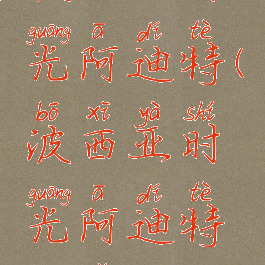 guāng ā dí tè
光阿迪特(
bō xī yà shí
波西亚时
guāng ā dí tè
光阿迪特